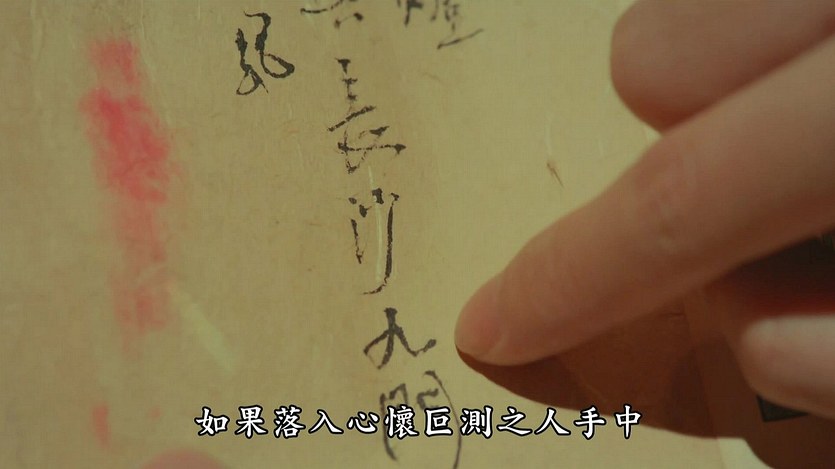 長門九
風
如果落入心懷叵測之人手中